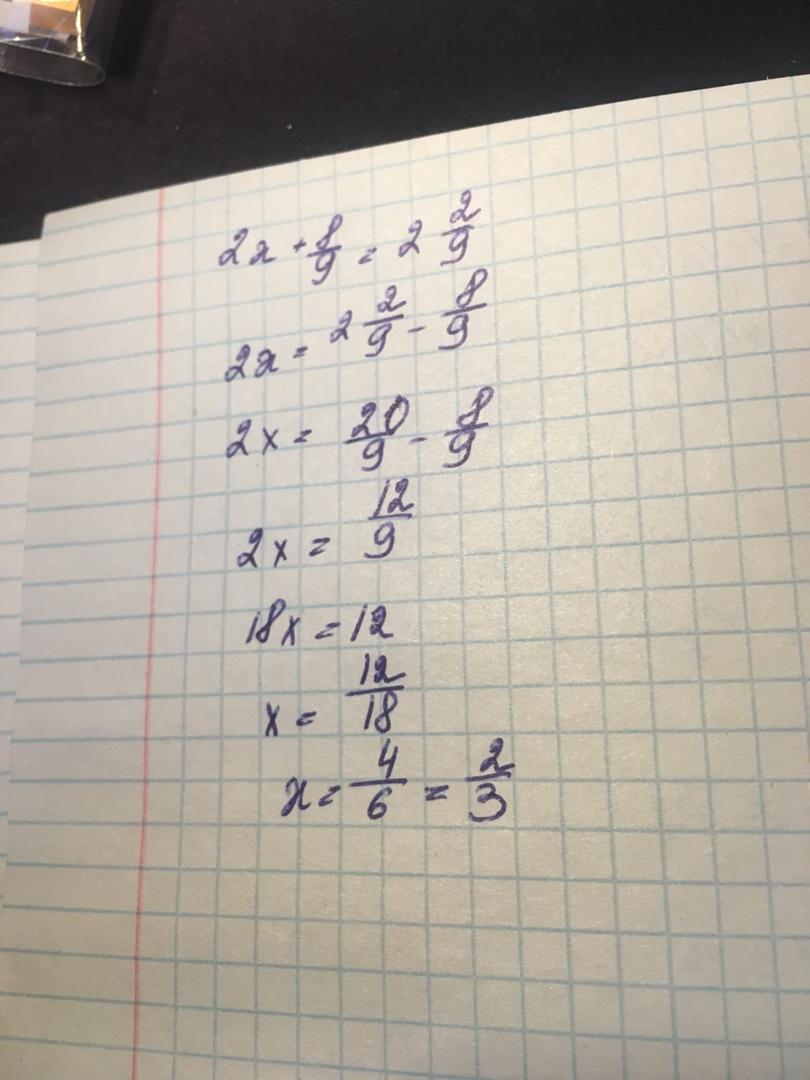 2x + 8/9 = 2 2/9
2x = 2 2/9 - 8/9
2x = 20/9 - 8/9
2x = 12/9
18x = 12
x = 12/18
x = 4/6 = 2/3